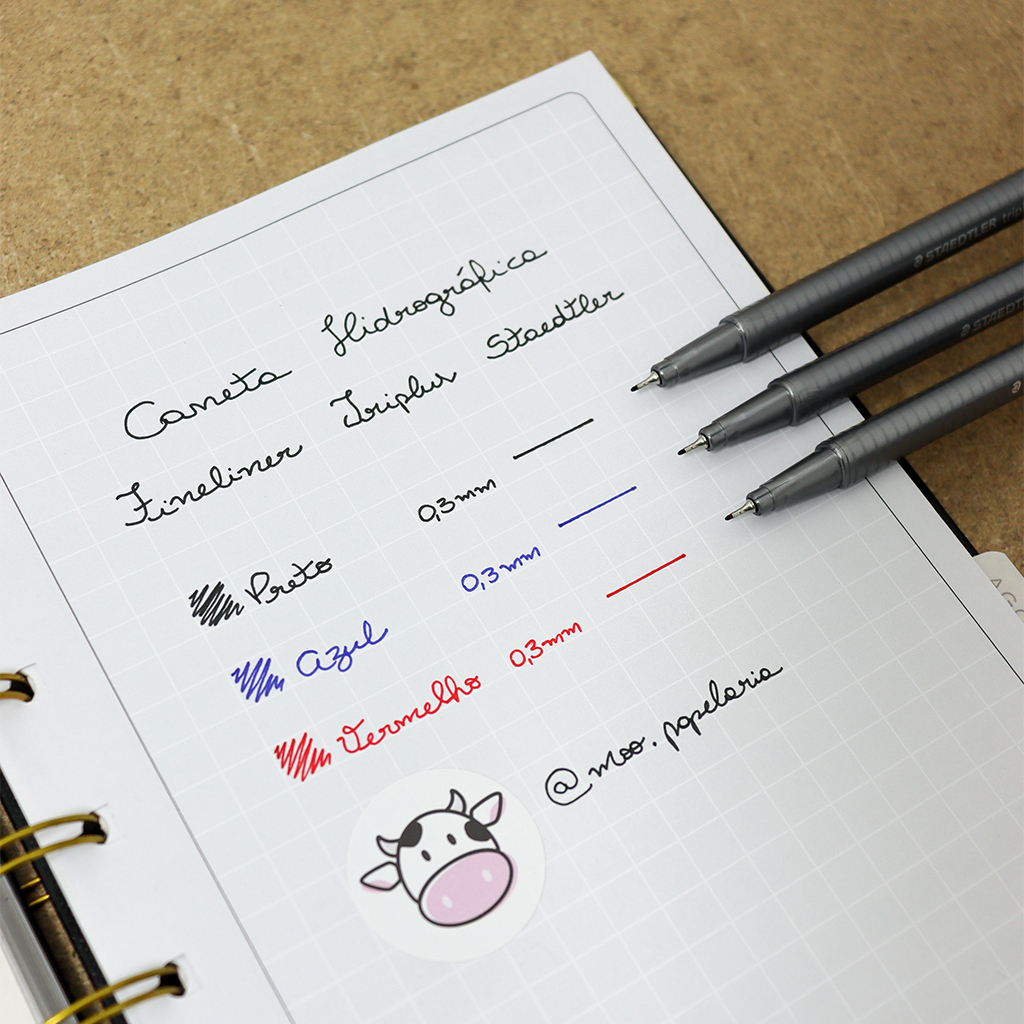 Caneta Hidrográfica
Fineliner Triplus Staedtler
Preto 0,3mm
Azul 0,3mm
Vermelho 0,3mm
@moo.papelaria
STAEDTLER trip
STAEDTLER